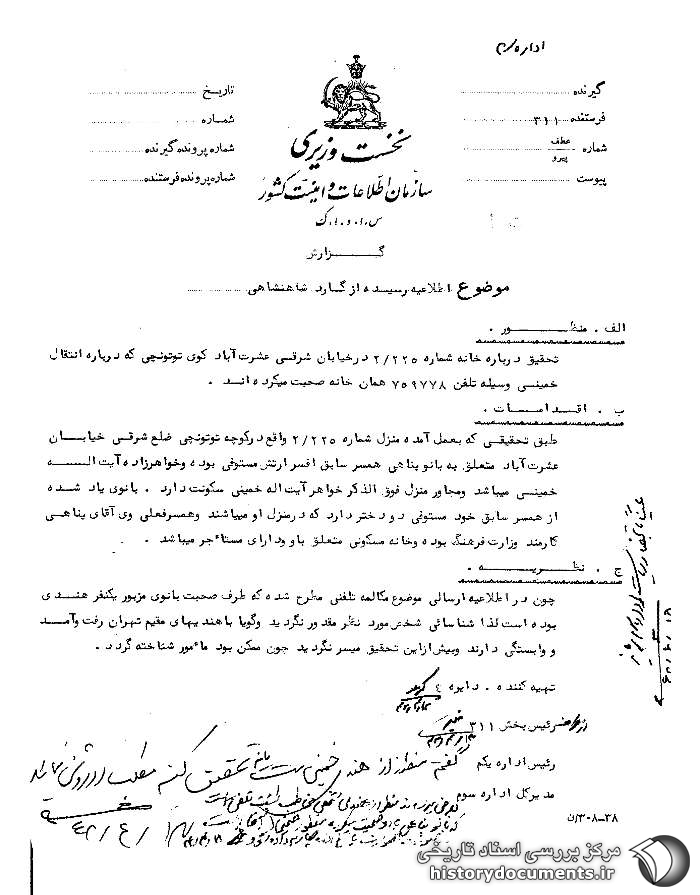 اداره سوم
گیرنده
تاریخ
فرستنده ۳۱۱
شماره
شماره عطف پیرو
شماره پرونده گیرنده
پیوست
شماره پرونده فرستنده
نخست وزیری
سازمان اطلاعات و امنیت کشور
س.ا.و.ا.ک
گزارش
موضوع اطلاعیه رسیده از گارد شاهنشاهی
الف . منظور .
تحقیق درباره خانه شماره ۲/۲۲۵ در خیابان شرقی عشرت آباد کوی توتونچی که درباره انتقال
خمینی وسیله تلفن ۷۵۹۷۷۸ همان خانه صحبت میکرده اند .
ب . اقدامات .
طبق تحقیقی که بعمل آمده منزل شماره ۲/۲۲۵ واقع در کوچه توتونچی ضلع شرقی خیابان
عشرت آباد متعلق به بانو پناهی همسر سابق افسر ارتش مستوفی بوده وخواهرزاده آیت الله
خمینی میباشد ومجاور منزل فوق الذکر خواهر آیت اله خمینی سکونت دارد . بانوی یاد شده
از همسر سابق خود مستوفی دو دختر دارد که در منزل او میباشند وهمسرفعلی وی آقای پناهی
کارمند وزارت فرهنگ بوده وخانه مسکونی متعلق باو ودارای مستأجر میباشد .
ج . نظریه .
چون در اطلاعیه ارسالی موضوع مکالمه تلفنی مطرح شده که طرف صحبت بانوی مزبور یکنفر هندی
بوده است لذا شناسائی شخص مورد نظر مقدور نگردید وگویا با هندیهای مقیم تهران رفت وآمد
و وابستگی دارند وبیش از این تحقیق میسر نگردید چون ممکن بود مأمور شناخته گردد .
تهیه کننده . دایره ۴
رئیس بخش ۳۱۱
رئیس اداره یکم
مدیرکل اداره سوم
گفتم منظور از هندی خمینی است
تحقیق کنند مطلب را روشن
۴۲/۴/۱۸
۳۸-۳۰۸/ن
مرکز بررسی اسناد تاریخی
historydocuments.ir